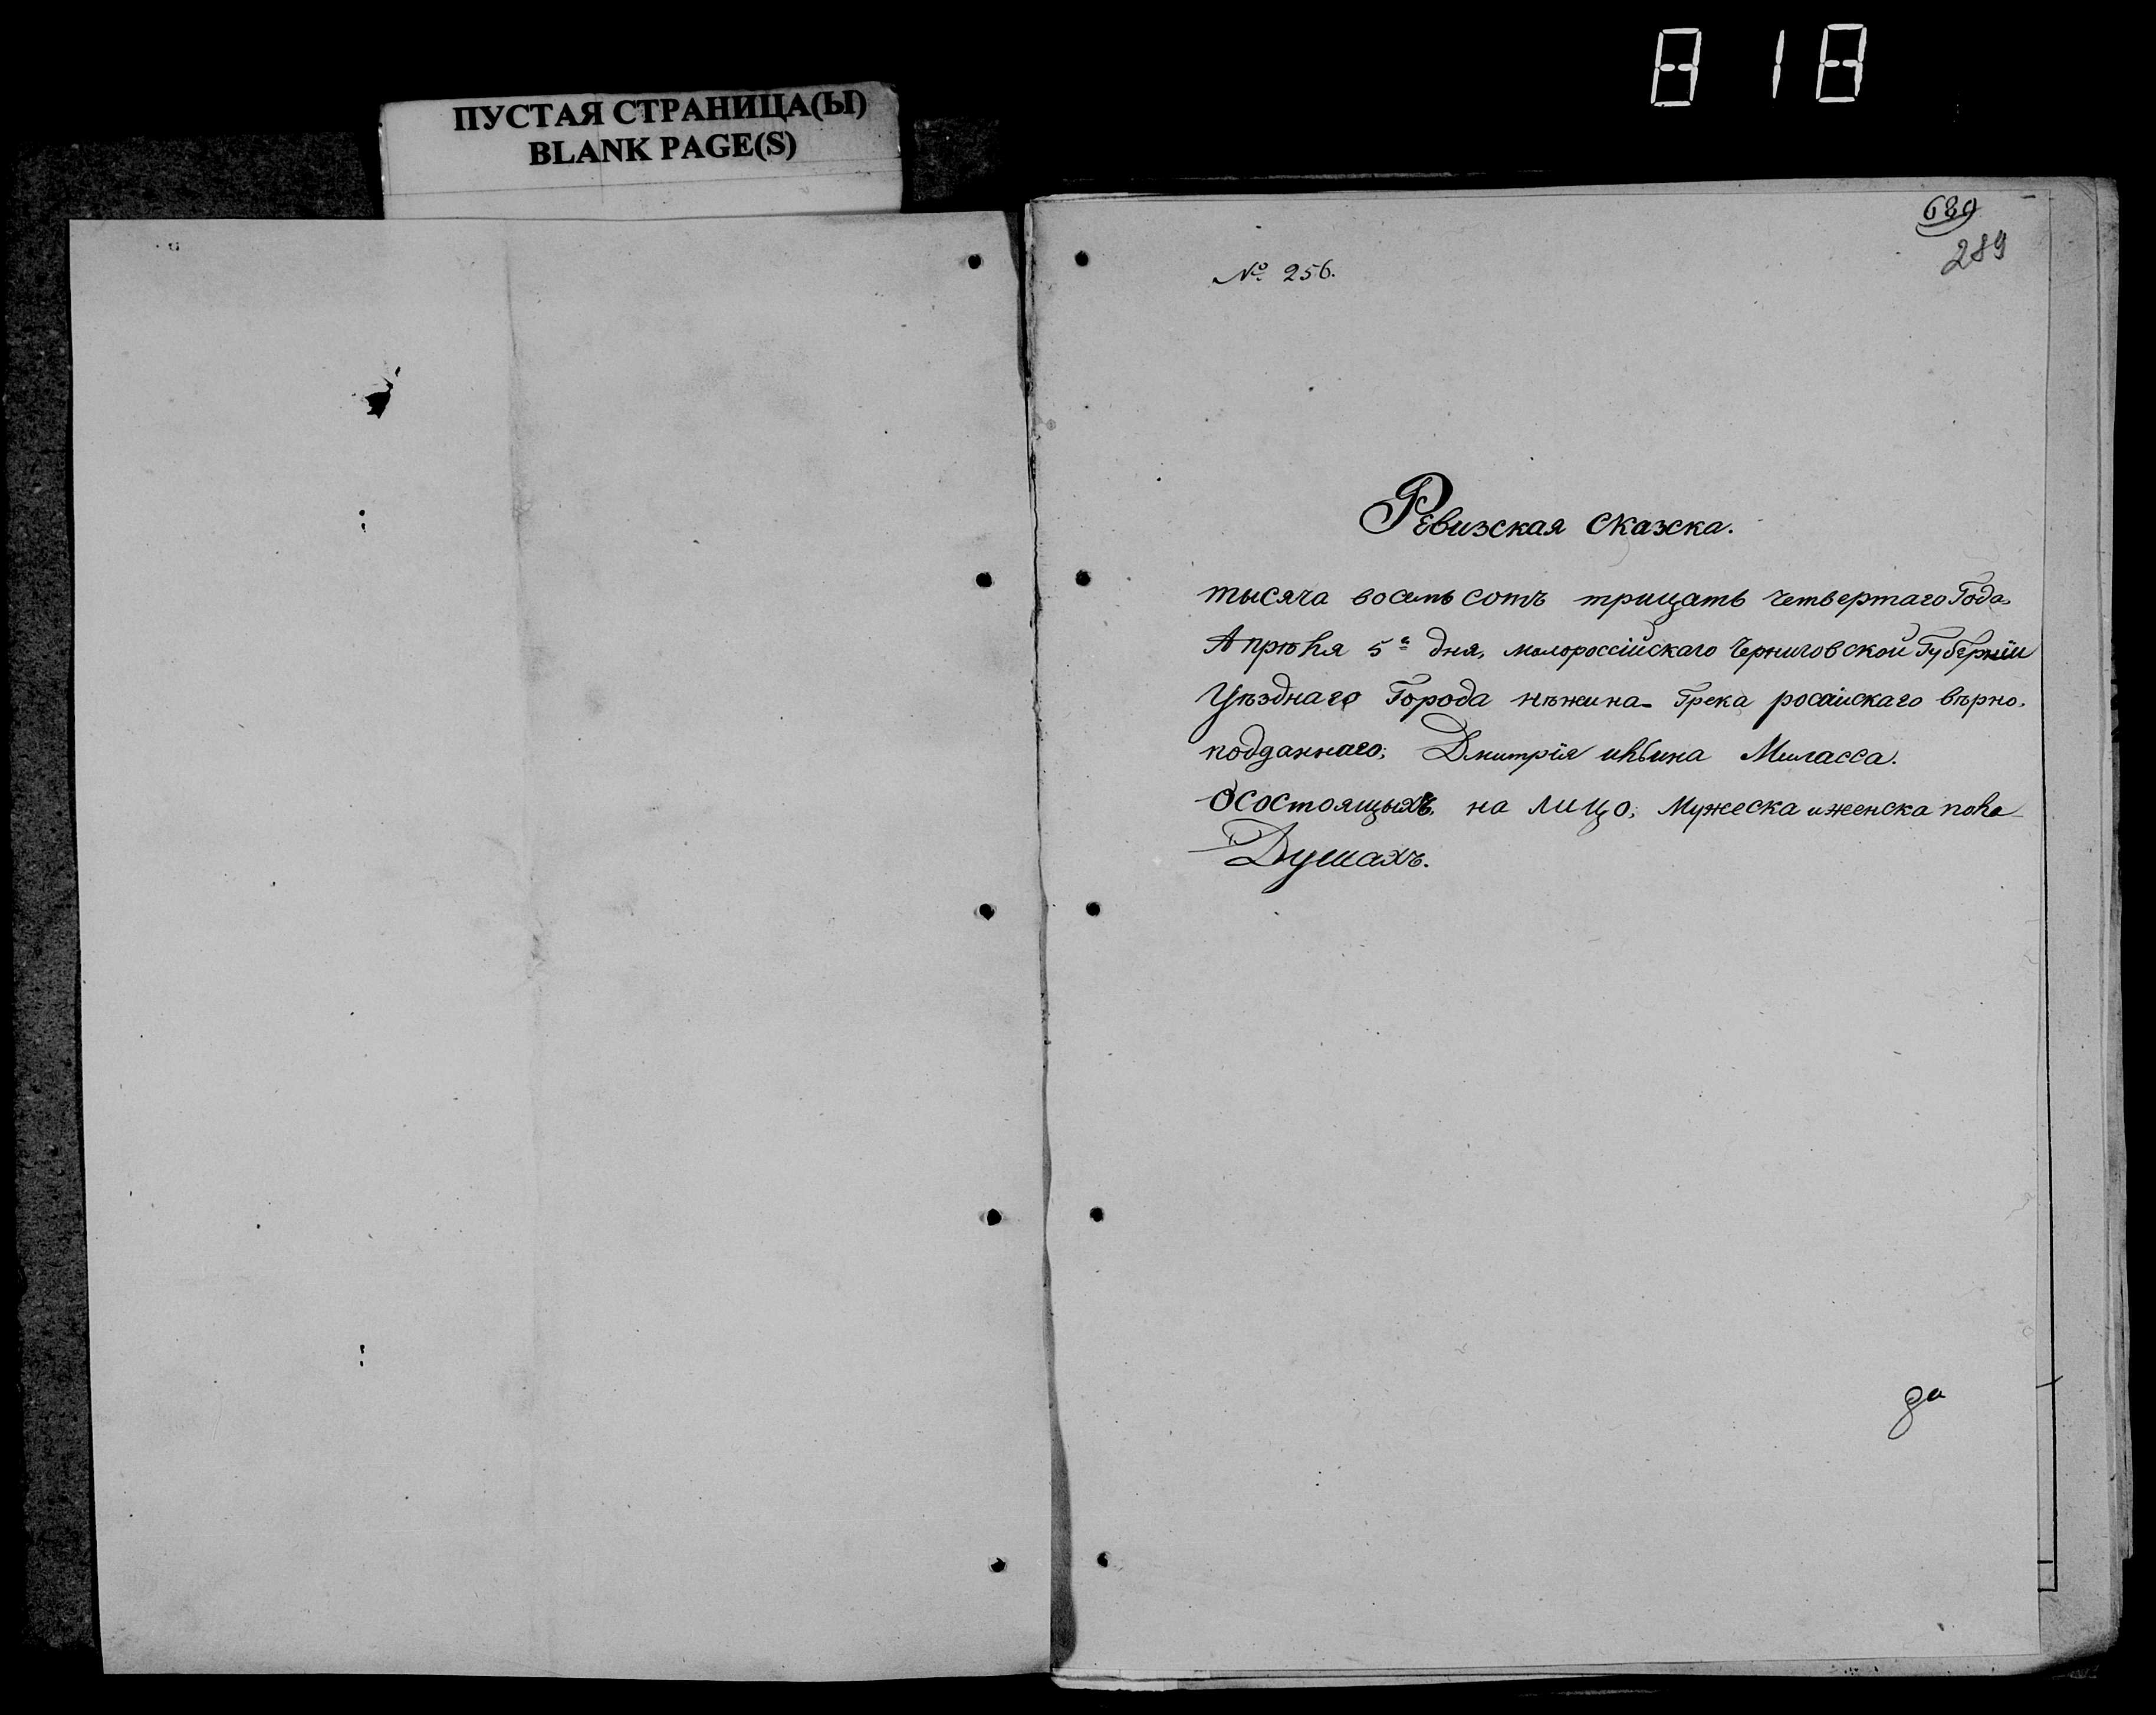 818
ПУСТАЯ СТРАНИЦА(Ы)
BLANK PAGE(S)
689
289
№ 256.
Ревизская сказка.
тысяча восемь сотъ трицать четвертаго Года,
Апрѣля 5е дня, малороссійскаго Черниговской Губерніи
Уѣзднаго Города нѣжина Грека росайскаго вѣрно-
подданнаго; Дмитрія ильина Миласса.
О состоящыхъ, на лицо, Мужеска и женска пола
Душахъ.